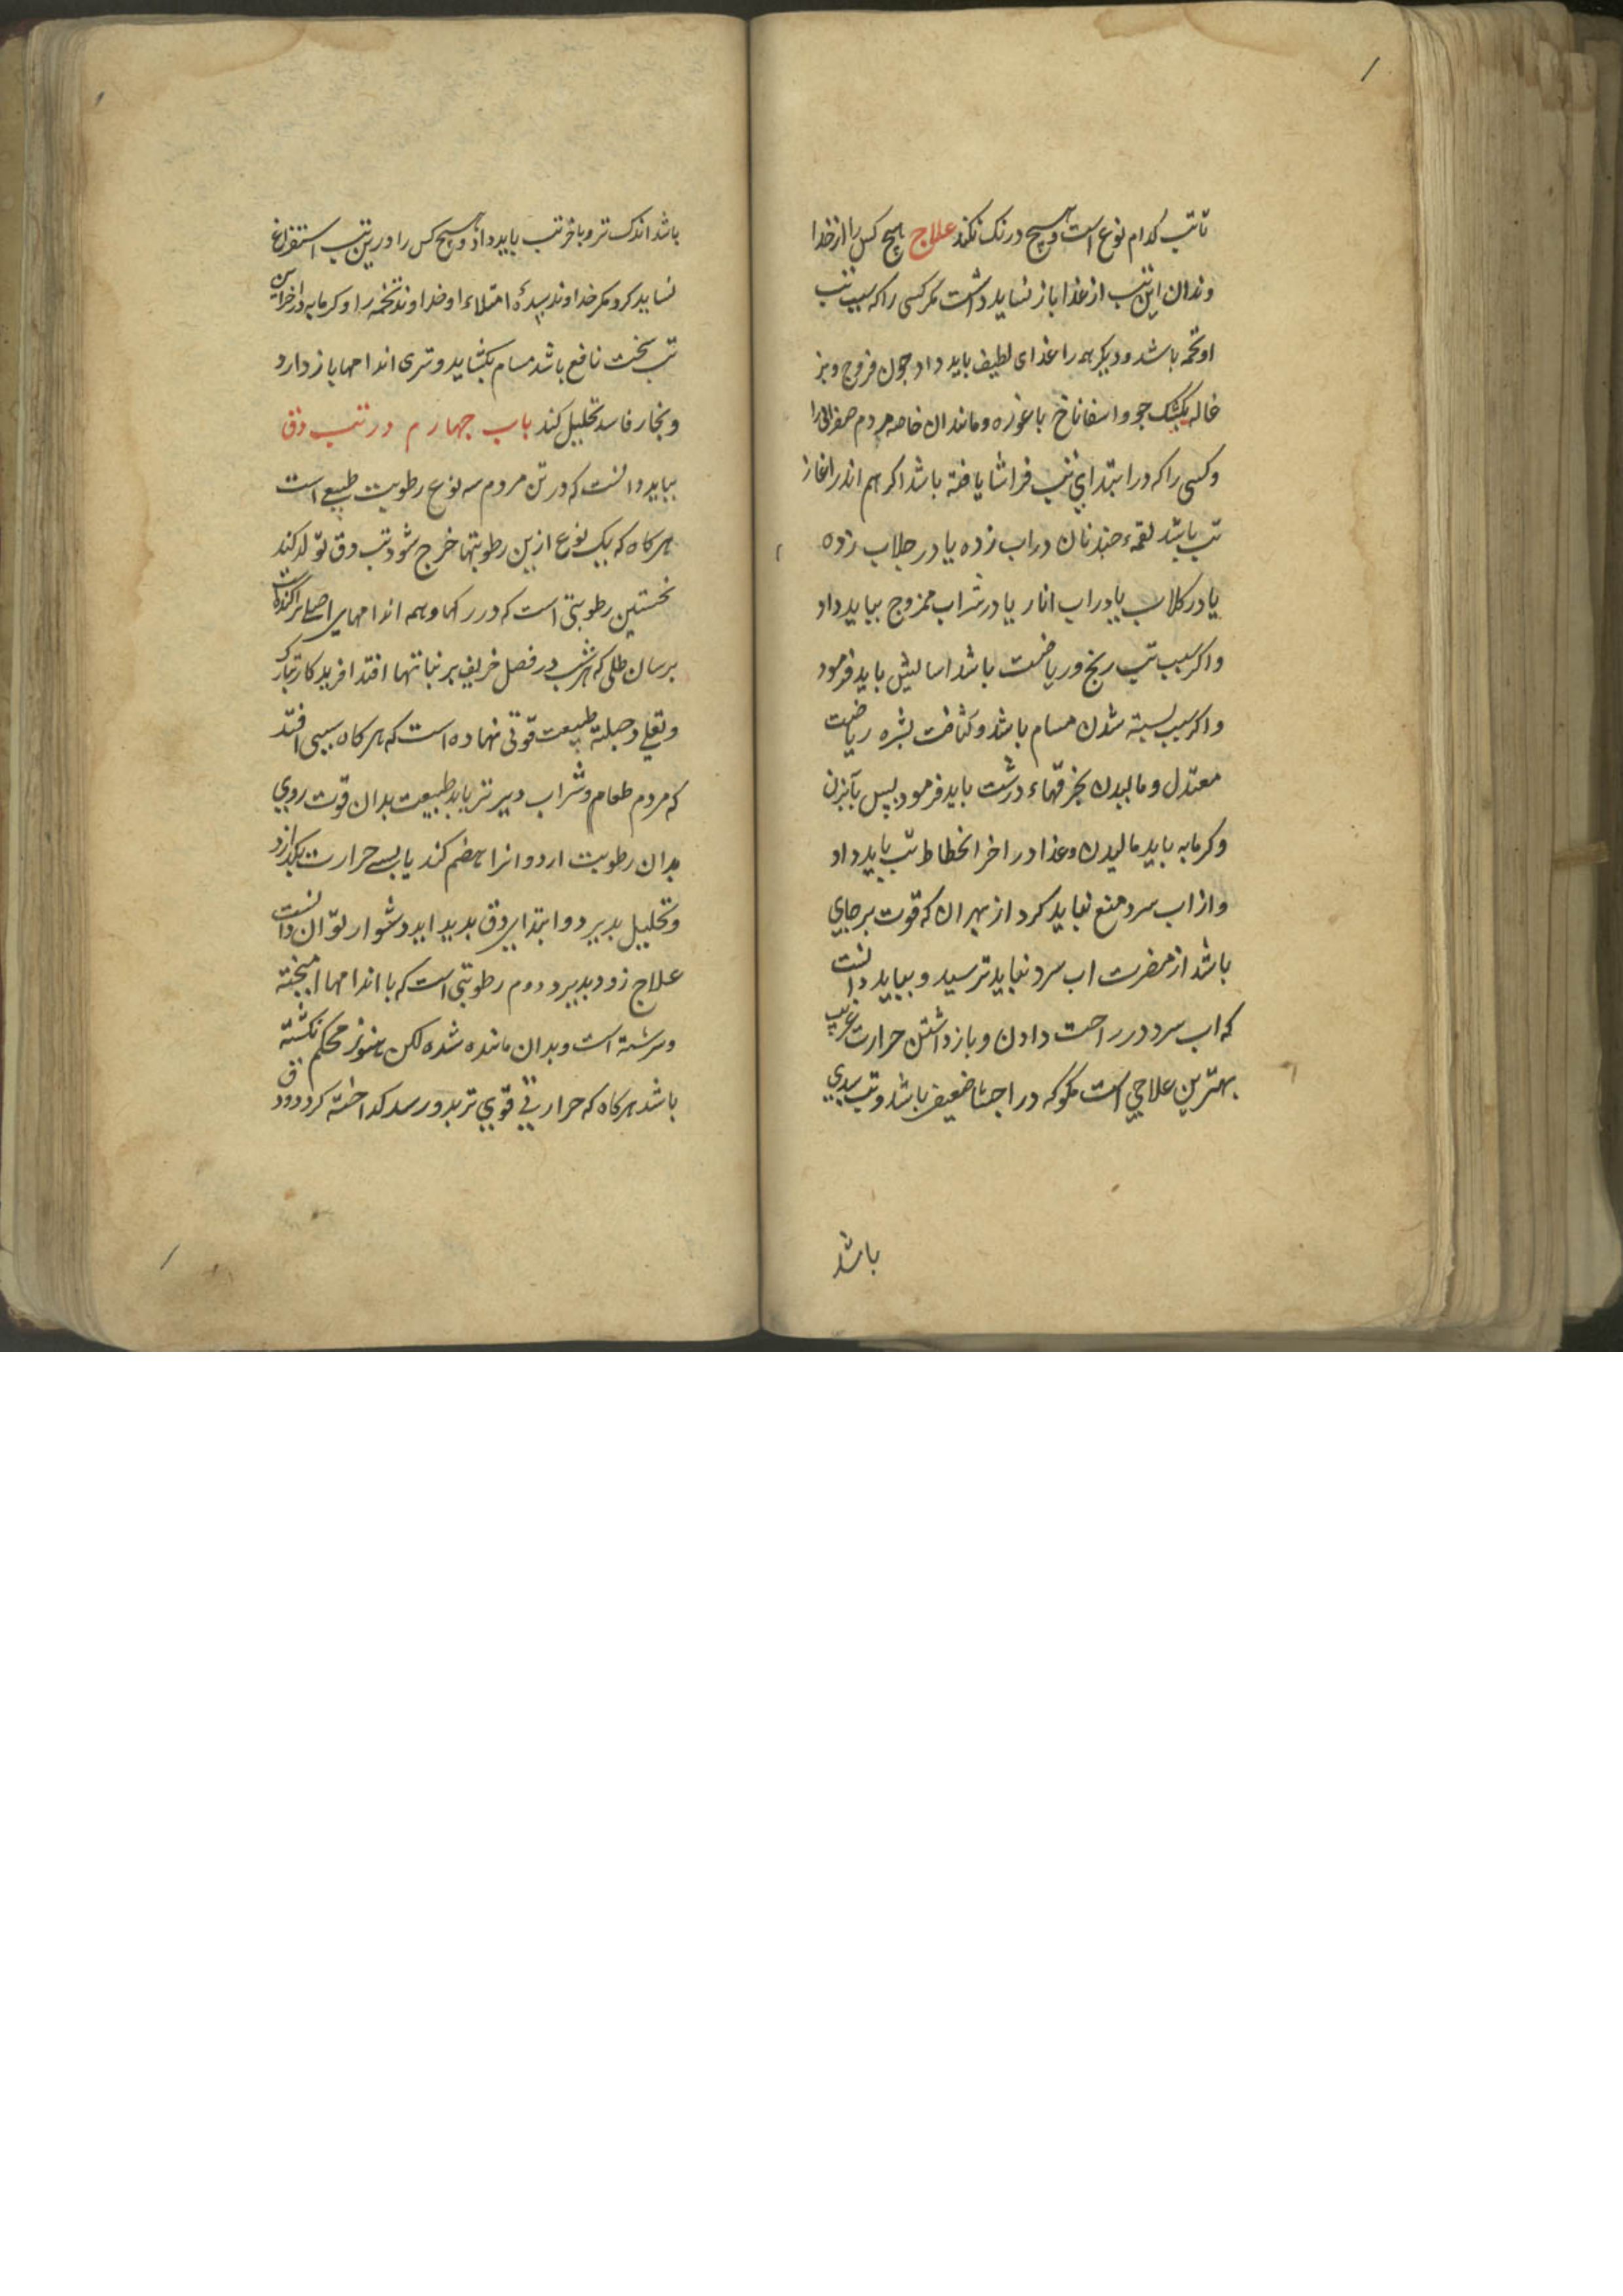 تا تب کدام نوع است و هیچ درنک نکند علاج هیچ کس را از خدا
وندان این تب از غذا باز نشاید داشت مکر کسی را که سبب تب
او تخمه باشد و دیکر همه را غذای لطیف باید داد جون فروج و بز
غاله بکشک جو و اسفاناخ باغوره و مانند ان خاصه مردم صفرائی را
و کسی را که در ابتدای تب فراشا یافته باشد اکر هم اندر اغاز
تب باشد لقمهٔ جند نان در اب زده یا در جلاب زده
یا در کلاب یا در اب انار یا در شراب ممزوج بباید داد
و اکر سبب تب رنج و ریاضت باشد اسایش باید فرمود
و اکر سبب بسته شدن مسام باشد و کثافت بشره ریاضت
معتدل و مالیدن بخرقهاء درشت باید فرمود بس بآبزن
و کرمابه باید مالیدن و غذا در اخر انحطاط تب باید داد
و از اب سرد منع نباید کرد از بهر ان که قوت برجای
باشد از مضرت اب سرد نباید ترسید و بباید دانست
که اب سرد در راحت دادن و باز داشتن حرارت غریب
بهترین علاجی است مکر که در احشا ضعیف باشد و تب سدی
باشد
باشد اندک تر و باخر تب باید داد و هیچ کس را درین تب استفراغ
نشاید کرد مکر خداوند سدهٔ امتلاء او خداوند تخمه را و کرمابه در اخر این
تب سخت نافع باشد مسام بکشاید و تری اندامها باز دارد
و بخار فاسد تحلیل کند باب جهارم در تب دق
بباید دانست که در تن مردم سه نوع رطوبت طبیعی است
هرکاه که یک نوع ازین رطوبتها خرج شود تب دق تولد کند
نخستین رطوبتی است که در رکها و همه اندامهای اصلی پراکنده است
برسان طلی که هر شب در فصل خریف بر نباتها افتد افریدکار تبارک
و تعلی در جبلة طبیعت قوتی نهاده است که هرکاه سببی افتد
که مردم طعام و شراب دیرتر یابد طبیعت بدان قوت روی
بدان رطوبت ارد و انرا هضم کند یا بسبب حرارت بکدازد
و تحلیل بدیرد و ابتدای دق بدید اید دشوار توان دانست
علاج زود بدیرد دوم رطوبتی است که با اندامها امیخته
و سرشته است و بدان ماننده شده لکن هنوز محکم نکشته
باشد هرکاه که حرارتی قوی تر بدو رسد کداخته کردد و دق